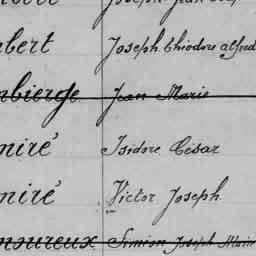 bert Joseph Théodore Alfred
bierge Jean Marie
miré Isidore César
miré Victor Joseph
moureux Siméon Joseph Marie